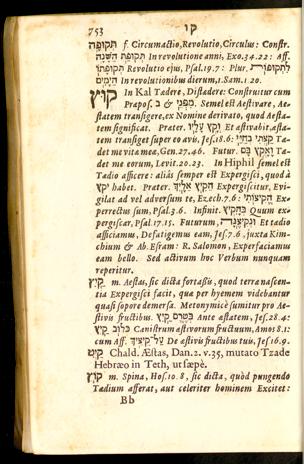 753 קו
תקופה f. Circumactio, Revolutio, Circulus: Constr.
תקופת השנה In revolutione anni, Exo. 34. 22: Aff.
תקופתו Revolutio ejus, Psal. 19. 7: Plur. לתקופות
הימים In revolutionibus dierum, 1. Sam. 1. 20.
קוץ In Kal Tædere, Distædere: Construitur cum
Præpos. ב & מפני Semel est Æstivare, Æ-
statem transigere, ex Nomine derivato, quod Æsta-
tem significat. Præter. וקץ עליו Et æstivabit, æsta-
tem transiget super eo avis, Jes. 18. 6: קצתי בחיי Tæ-
det me vita mea, Gen. 27. 46. Futur. ואקץ בם Tæ-
det me eorum, Levit. 20. 23. In Hiphil semel est
Tædio afficere: aliàs semper est Expergisci, quod à
יקץ habet. Præter. הקיץ אליך Expergiscitur, Evi-
gilat ad vel adversum te, Ezech. 7. 6: הקיצותי Ex-
perrectus sum, Psal. 3. 6. Infinit. בהקיץ Quum ex-
pergiscar, Psal. 17. 15. Futurum, ונקיצנה Et tædio
afficiamus, Defatigemus eam, Jes. 7. 6, juxta Kim-
chium & Ab. Esram: R. Salomon, Expergefaciamus
eam bello. Sed activum hoc Verbum nunquam
reperitur.
קיץ m. Æstas, sic dicta fortassis, quod terra nascen-
tia Expergisci facit, quæ per hyemem videbantur
quasi sopore demersa. Metonymicè sumitur pro Æ-
stivis fructibus. בטרם קיץ Ante æstatem, Jes. 28. 4:
כלוב קיץ Canistrum æstivorum fructuum, Amos 8. 1:
cum Aff. על־קיצך De æstivis fructibus tuis, Jes 16. 9.
קיט Chald. Æstas, Dan. 2. v. 35, mutato Tzade
Hebræo in Teth, ut sæpè.
קוץ m. Spina, Hos. 10. 8, sic dicta, quòd pungendo
Tædium afferat, aut celeriter hominem Excitet:
Bb